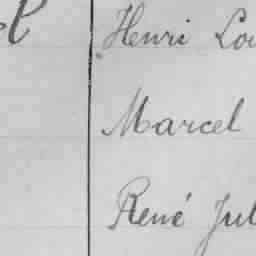 Henri Lou
Marcel
René Jul